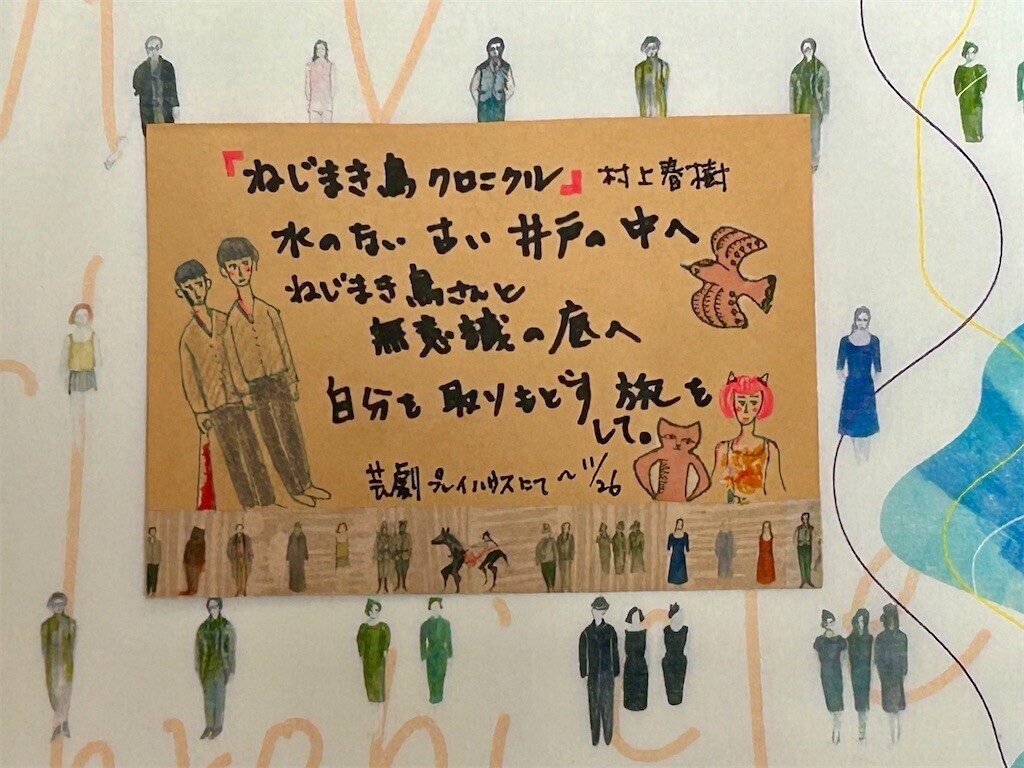 『ねじまき鳥クロニクル』村上春樹
水のない古い井戸の中へ
ねじまき鳥さんと
無意識の底へ
自分を取りもどす旅を
して。
芸劇プレイハウスにて 〜11/26